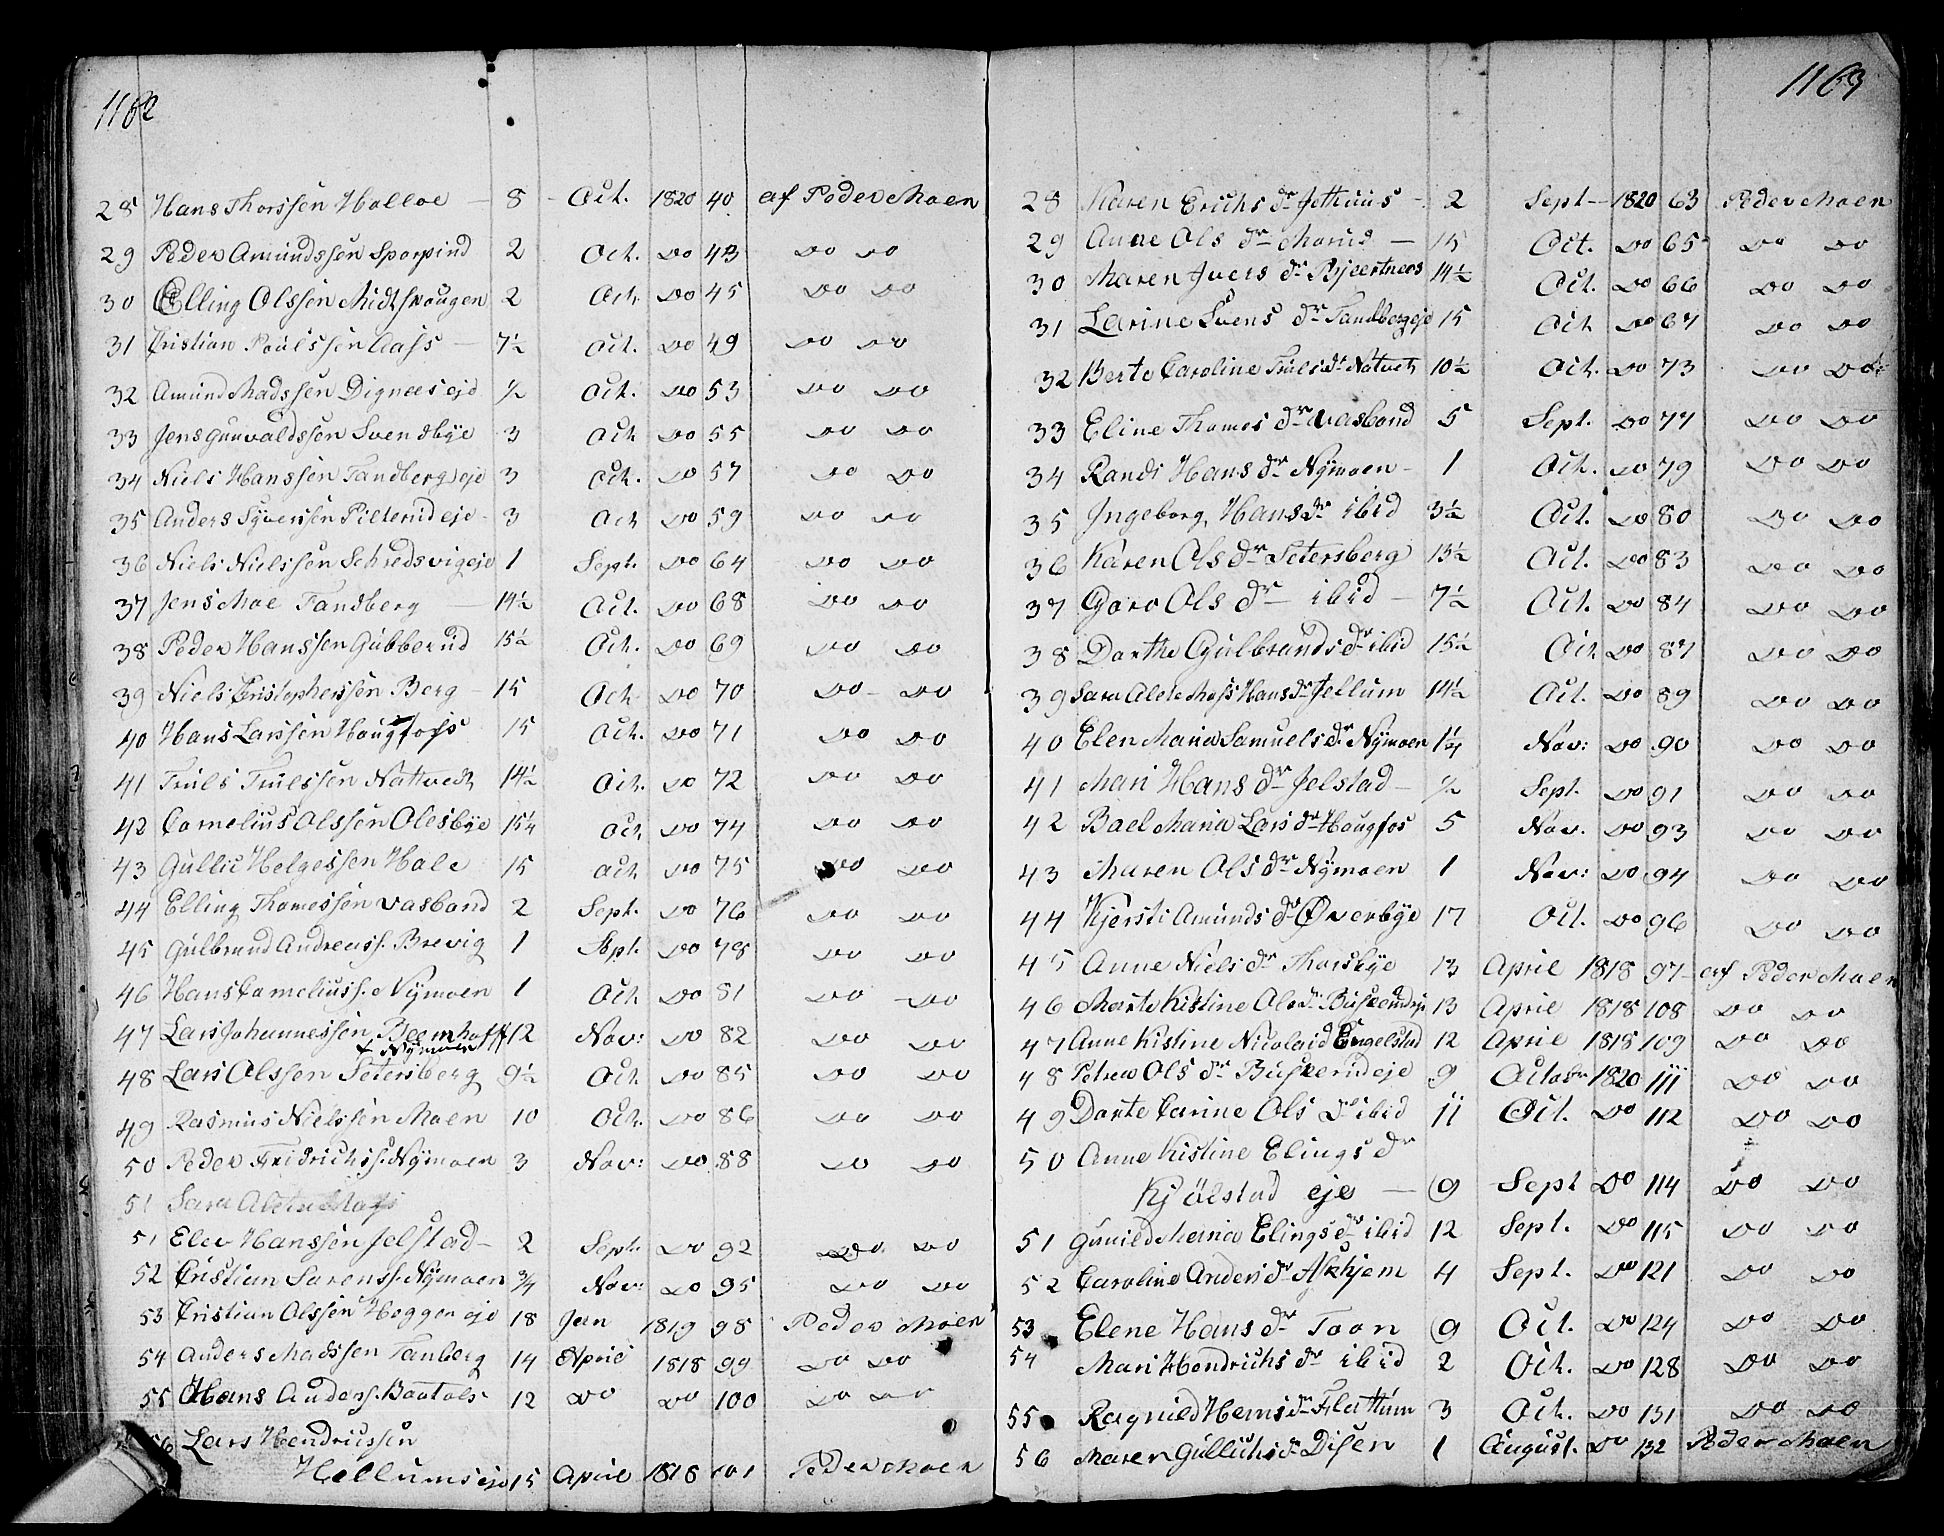 1162
28 Hans Thorssen Halloe — 8 - Oct. 1820 40. af Peder Moen
29 Peder Amundssen Sporpind 2 Oct. do 43 do do
30 Elling Olssen Midtshougen 2 Oct. do 45 do do
31 Cristian Poulssen Aass — 7½ Oct. do 49 do do
32 Amund Madssen Digneesejd ½ Oct. do 53 do do
33 Jens Gunvaldssen Svendbye 3 Oct do 55 do do
34 Niels Hanssen Tandberg eje 3 Oct. do 57 do do
35 Anders Syverssen Pilterud eje 3 Oct do 59 do do
36 Niels Nielssen Schredsvigeje 1 Sept. do 64 do do
37 Jens Moe Tandberg — 14½ Oct. do 68 do do
38 Peder Hanssen Gubberud 15½ Oct. do 69 do do
39 Niels Cristopherssen Berg - 15 Oct do 70 do do
40 Hans Larssen Hougfoss 15 Oct. do 71 do do
41 Truls Trulssen Nattvedt 14½ Oct. do 72 do do
42 Cornelius Olssen Olesbye 15¼ Oct do 74 do do
43 Gullic Helgessen Hole 15 Oct do 75 do do
44 Elling Thomessen Vasbond 2 Sept. do 76 do do
45 Gulbrand Andreass. Brevig 1 Sept. do 78 do do
46 Hans Corneliuss. Nymoen 1 Oct do 81 do do
47 Lars Johannessen Bloemhoff 12 Nov: do 82 do do
Nymoen
48 Lars Olssen Setersberg 9½ Oct do 85 do do
49 Rasmus Nielssen Moen 10 Oct. do 86 do do
50 Peder Fridrichss. Nymoen 3 Nov: do 88 do do
51 Sara Alete Moss
51 Elev Hanssen Jelstad — 2 Sept. do 92 do do
52 Cristian Sorenss. Nymoen ¾ Nov: do 95 do do
53 Cristian Olssen Heggen eje 18 Jan 1819 98 Peder Moen
54 Anders Madssen Tanberg 14 April 1818 99 do do
55 Hans Anderss. Baatols 12 do do 100 do do
56 Lars Hendrussen
Hellumseje 15 April 1818 101 Peder Moen
1163
28 Karen Erichs dr Jethuus - 2 Sept — 1820 63 Peder Moen
29 Anne Ols dr Morud — 15 Oct. do 65 do do
30 Maren Ivers dr Bjeertnees 14½ Oct. do 66 do do
31 Larine Svens dr Tandbergeje 15 Oct do 67 do do
32 Berte Caroline Truls dr Natvet 10½ Oct. do 73 do do
33 Eline Thomes dr Vasbond 5 Sept. do 77 do do
34 Randi Hans dr Nymoen - 1 Oct. do 79 do do
35 Ingeborg Hans dr ibid 3½ Oct. do 80 do do
36 Karen Ols dr Setersberg 13½ Oct. do 83 do do
37 Goro Ols dr — ibid — 7½ Oct. do 84 do do
38 Dorthe Gulbrands dr ibid 15½ Oct do 87 do do
39 Sara Alete Moss Hans dr Jellum 14½ Oct. do 89 do do
40 Elen Maria Samuels dr Nymoen 1¼ Nov: do 90 do do
41 Mari Hans dr Jelstad — ½ Sept. do 91 do do
42 Bael Maria Lars dr Hougfos 5 Nov. do 93 do do
43 Maren Ols dr Nymoen 1 Nov: do 94 do do
44 Kjersti Amunds dr Øverbye 17 Oct. do 96 do do
45 Anne Niels dr Thorsbye 13 April 1818 97 - af Peder Moen
46 Marte Kistine Ols dr Buskerudeje 13 April 1818 108 do do
47 Anne Kistine Nicolaid Engelstad 12 April 1818 109 do do
48 Petrea Ols dr Buskerideje 9 Octobr 1820 111 do do
49 Dorte Carine Ols dr ibid 11 Oct. do 112 do do
50 Anne Kistine Elings dr
Kjølstad eje — 9 Sept do 114 do do
51 Gunild Maria Elings dr ibid 12 Sept. do 115 do do
52 Caroline Anders dr Askjem 4 Sept. do 121 do do
53 Elene Hans dr Toon 9 Oct. do 124 do do
54 Mari Hendrichs dr ibid 2 Oct. do 128 do do
55 Ragnild Hans dr Flattum 3 Oct. do 131 do do
56 Maren Gullichs dr Disen 1 August. do 132 Peder Moen